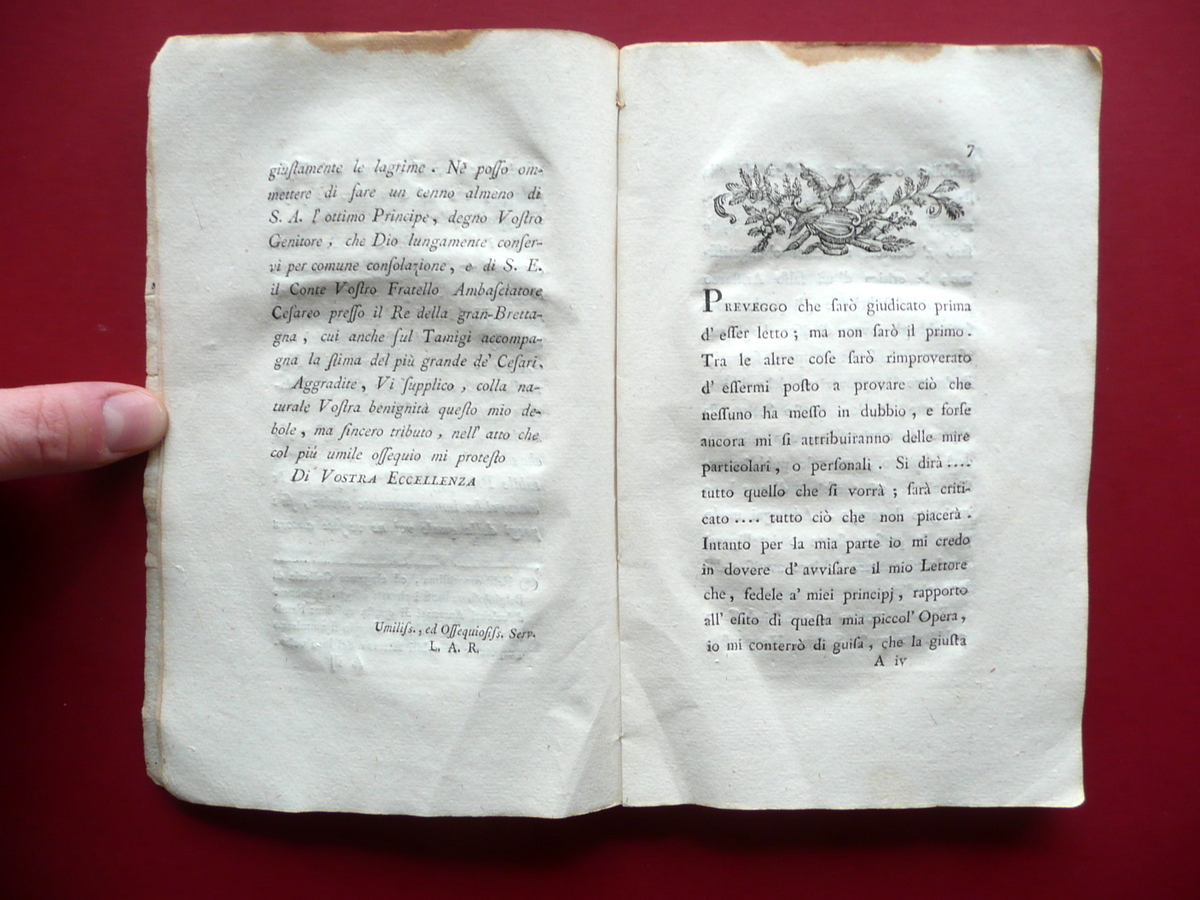 giuſtamente le lagrime. Nè poſſo om-
mettere di fare un cenno almeno di
S. A. l'ottimo Principe, degno Voſtro
Genitore, che Dio lungamente conſer-
vi per comune conſolazione, e di S. E.
il Conte Voſtro Fratello Ambaſciatore
Ceſareo preſſo il Re della gran-Bretta-
gna, cui anche ſul Tamigi accompa-
gna la ſtima del più grande de' Ceſari.
Aggradite, Vi ſupplico, colla na-
turale Voſtra benignità queſto mio de-
bole, ma ſincero tributo, nell' atto che
col piú umile oſſequio mi proteſto
Di VOSTRA ECCELLENZA
Umiliſs., ed Oſſequioſiſs. Serv.
L. A. R.
7
PREVEGGO che ſarò giudicato prima
d' eſſer letto; ma non ſarò il primo.
Tra le altre coſe ſarò rimproverato
d' eſſermi poſto a provare ciò che
neſſuno ha meſſo in dubbio, e forſe
ancora mi ſi attribuiranno delle mire
particolari, o perſonali. Si dirà....
tutto quello che ſi vorrà; ſarà criti-
cato.... tutto ciò che non piacerà.
Intanto per la mia parte io mi credo
in dovere d' avviſare il mio Lettore
che, fedele a' miei principj, rapporto
all' eſito di queſta mia piccol' Opera,
io mi conterrò di guiſa, che la giuſta
A iv